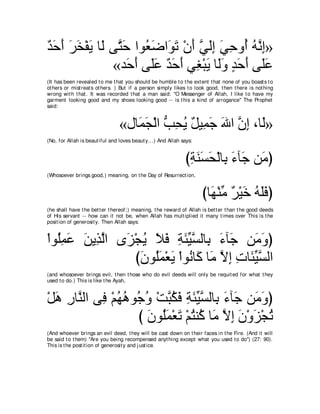 «إِنَّهُ أُوحِيَ إِلَيَّ أَنْ تَوَاضَعُوا حَتَّى لَا يَفْخَرَ أَحَدٌ
عَلَى أَحَدٍ وَلَا يَبْغِيَ أَحَدٌ عَلَى أَحَد»
(It has been revealed to me that you should be humble to the extent that none of you boasts to
others or mistreats others. ) But if a person simply likes to look good, then there is nothing
wrong with that. It was recorded that a man said: "O Messenger of Allah, I like to have my
garment looking good and my shoes looking good -- is this a kind of arrogance" The Prophet
said:
«لَا، إِنَّ اللهَ جَمِيلٌ يُحِبُّ الْجَمَال»
(No, for Allah is beautiful and loves beauty...) And Allah says:
(مَن جَآءَ بِالْحَسَنَةِ)
(Whosoever brings good,) meaning, on the Day of Resurrection,
(فَلَهُ خَيْرٌ مِّنْهَا)
(he shall have the better thereof;) meaning, the reward of Allah is better than the good deeds
of His servant -- how can it not be, when Allah has multiplied it many times over This is the
position of generosity. Then Allah says:
(وَمَن جَآءَ بِالسَّيِّئَةِ فَلَا يُجْزَى الَّذِينَ عَمِلُواْ
السَّيِّئَاتِ إِلاَّ مَا كَانُواْ يَعْمَلُونَ)
(and whosoever brings evil, then those who do evil deeds will only be requited for what they
used to do.) This is like the Ayah,
(وَمَن جَآءَ بِالسَّيِّئَةِ فَكُبَّتْ وُجُوهُهُمْ فِى النَّارِ هَلْ
تُجْزَوْنَ إِلاَّ مَا كُنتُمْ تَعْمَلُونَ )
(And whoever brings an evil deed, they will be cast down on their faces in the Fire. (And it will
be said to them) "Are you being recompensed anything except what you used to do") (27: 90).
This is the position of generosity and justice.